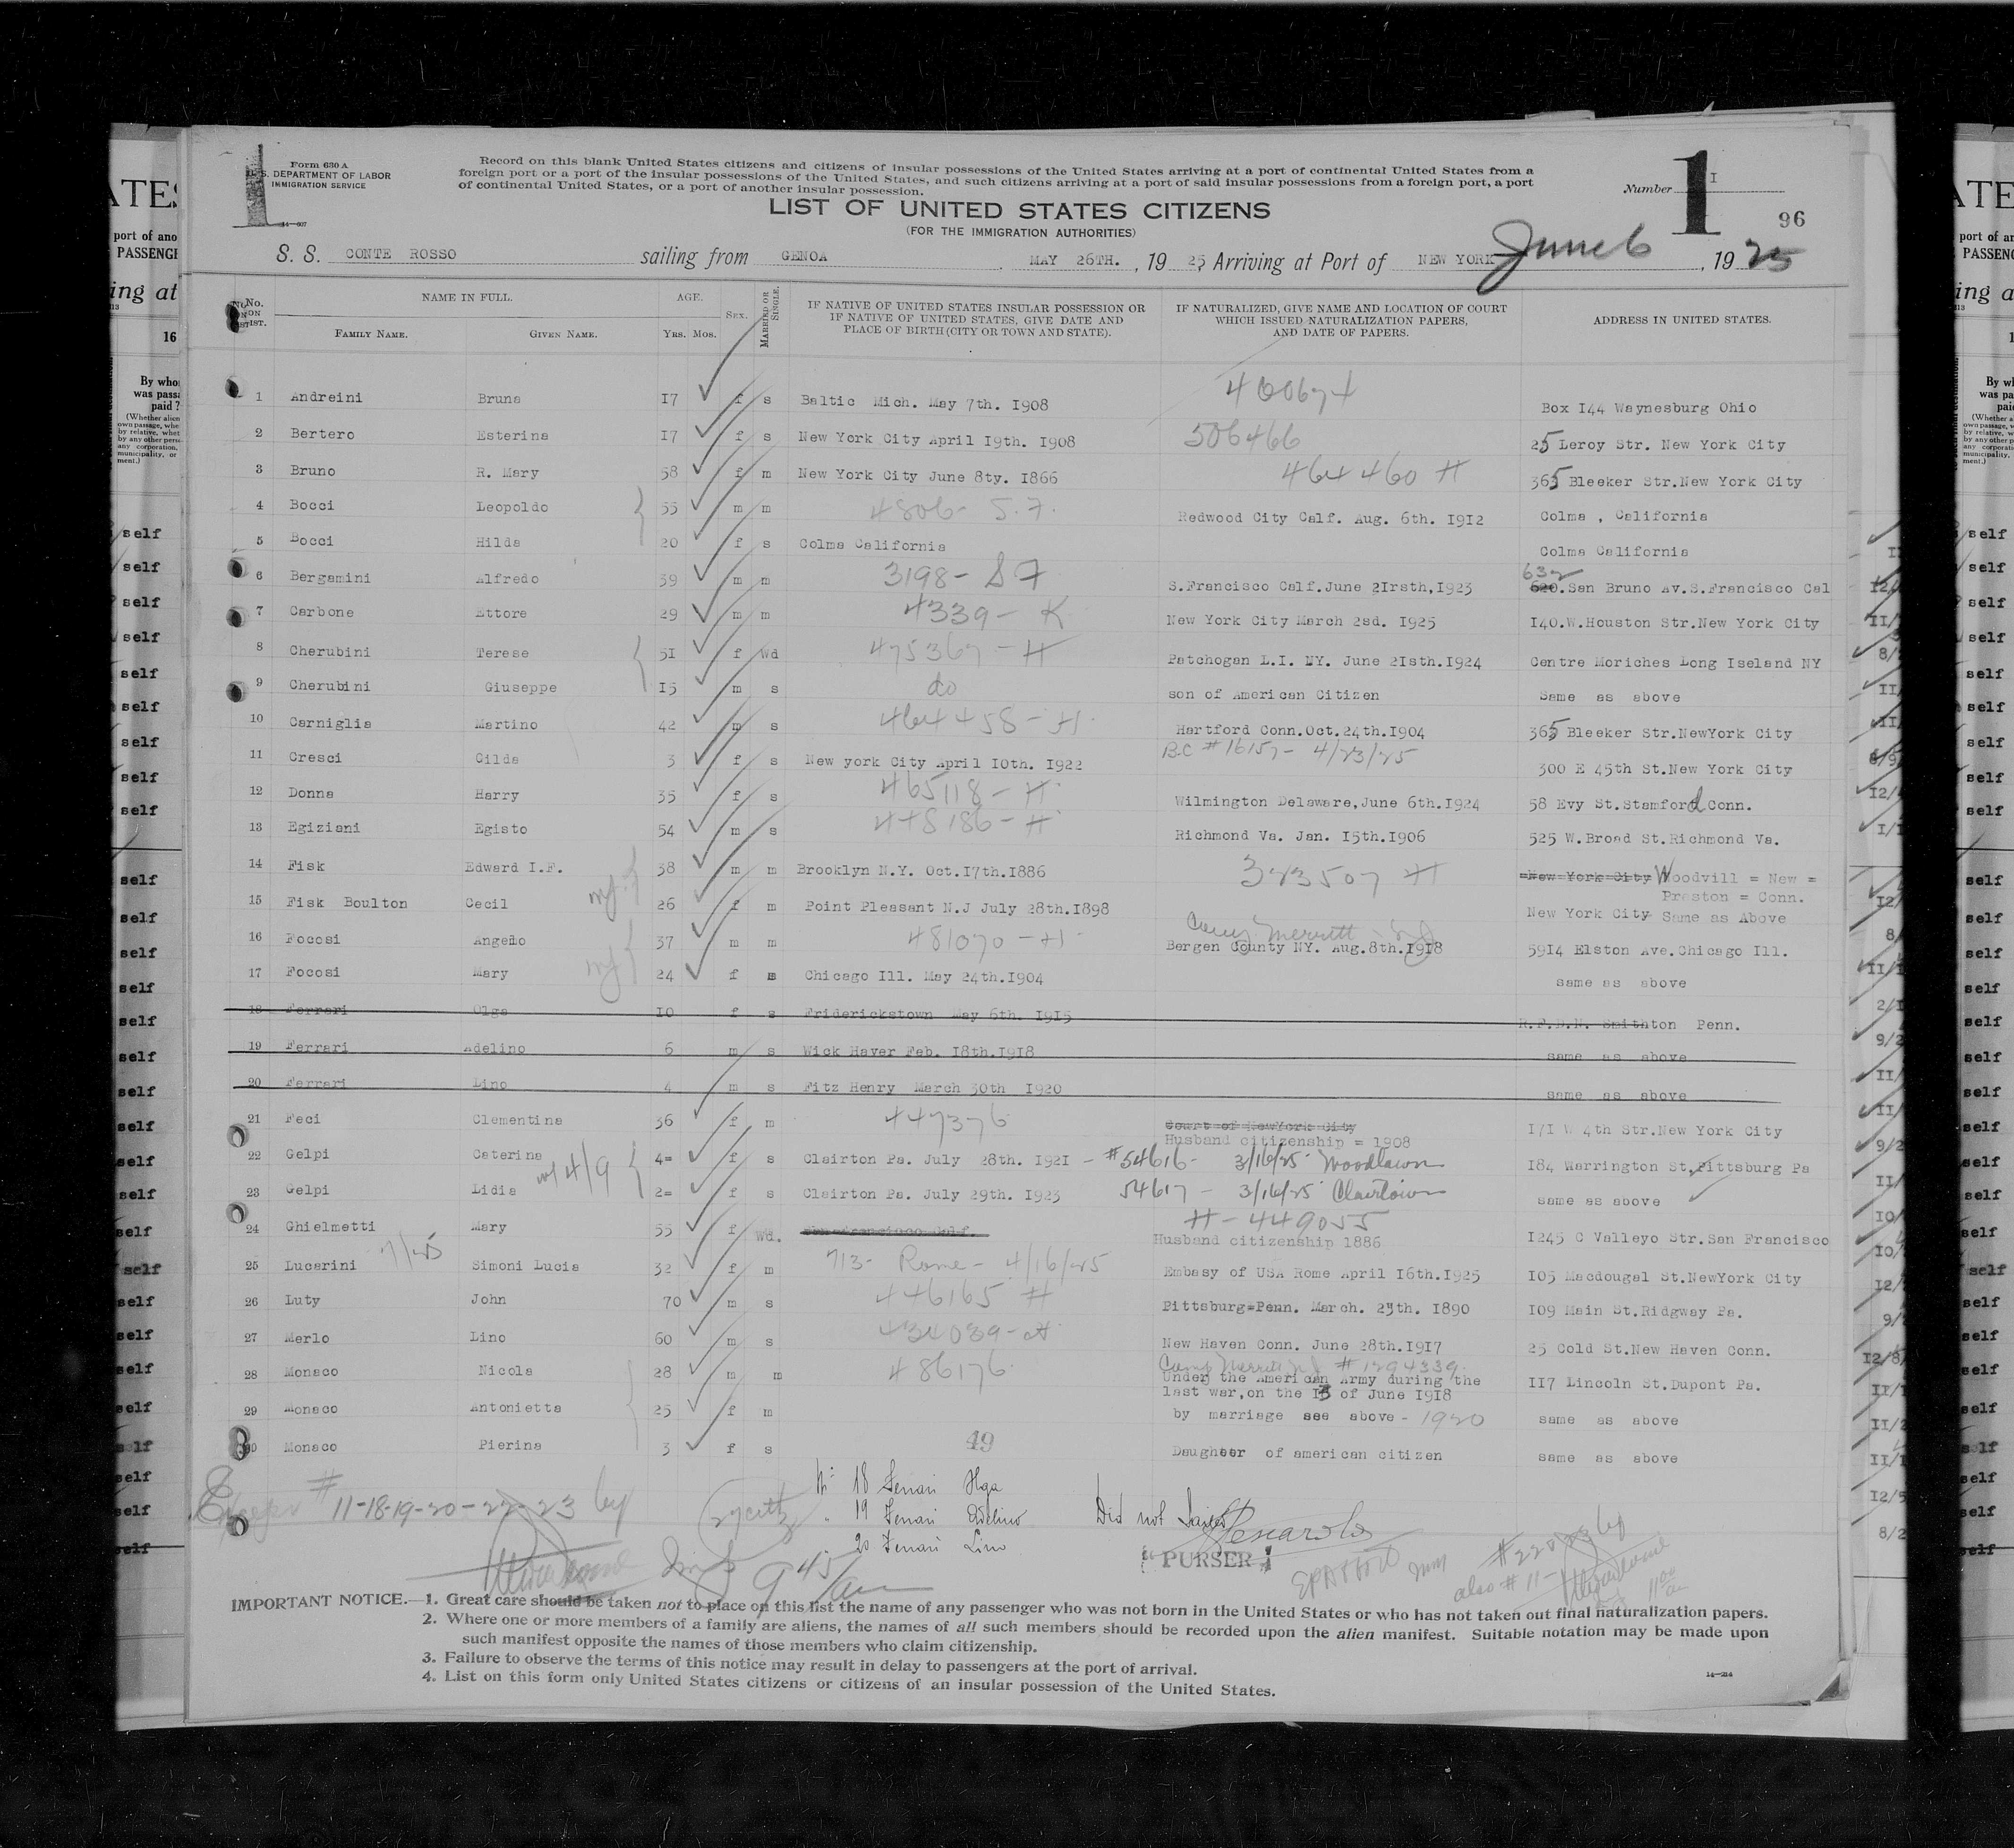 Form 630 A
U. S. DEPARTMENT OF LABOR
IMMIGRATION SERVICE
Record on this blank United States citizens and citizens of insular possessions of the United States arriving at a port of continental United States from a
foreign port or a port of the insular possessions of the United States, and such citizens arriving at a port of said insular possessions from a foreign port, a port
of continental United States, or a port of another insular possession.
Number I
1
96
LIST OF UNITED STATES CITIZENS
(FOR THE IMMIGRATION AUTHORITIES)
S. S. CONTE ROSSO sailing from GENOA , MAY 26TH. , 19 25, Arriving at Port of NEW YORK June 6 , 19 25
No. ON LIST. NAME IN FULL. FAMILY NAME. GIVEN NAME. AGE. YRS. MOS. SEX. MARRIED OR SINGLE. IF NATIVE OF UNITED STATES INSULAR POSSESSION OR IF NATIVE OF UNITED STATES, GIVE DATE AND PLACE OF BIRTH (CITY OR TOWN AND STATE). IF NATURALIZED, GIVE NAME AND LOCATION OF COURT WHICH ISSUED NATURALIZATION PAPERS, AND DATE OF PAPERS. ADDRESS IN UNITED STATES.
1 Andreini Bruna I7 f s Baltic Mich. May 7th. I908 Box I44 Waynesburg Ohio
2 Bertero Esterina I7 f s New York City April I9th. I908 506466 25 Leroy Str. New York City
3 Bruno R. Mary 58 f m New York City June 8ty. I866 464460 H 365 Bleeker Str.New York City
4 Bocci Leopoldo 55 m m 4806- S.F. Redwood City Calf. Aug. 6th. I9I2 Colma , California
5 Bocci Hilda 20 f s Colma California Colma California
6 Bergamini Alfredo 39 m m 3198- S F S.Francisco Calf.June 2Irsth,I923 632 620.San Bruno Av.S.Francisco Cal
7 Carbone Ettore 29 m m 4339- K New York City March 2sd. I925 I40.W.Houston Str.New York City
8 Cherubini Terese 5I f Wd 475367-H Patchogan L.I. NY. June 2Isth.I924 Centre Moriches Long Iseland NY
9 Cherubini Giuseppe I5 m s do son of American Citizen Same as above
10 Carniglia Martino 42 m s 464458-H. Hartford Conn.Oct.24th.I904 365 Bleeker Str.NewYork City
11 Cresci Gilda 3 f s New york City April I0th. I922 B.C # 16157- 4/23/25 300 E 45th St.New York City
12 Donna Harry 35 f s 465118-H. Wilmington Delaware,June 6th.I924 58 Evy St.Stamford Conn.
13 Egiziani Egisto 54 m s 478186-H Richmond Va. Jan. I5th.I906 525 W.Broad St.Richmond Va.
14 Fisk Edward I.F. 38 m m Brooklyn N.Y. Oct.I7th.I886 343507 H New York City Woodvill = New =
Preston = Conn.
15 Fisk Boulton Cecil 26 f m Point Pleasant N.J July 28th.I898 New York City Same as Above
16 Focosi Angelo 37 m m 481070-H Camp Merritt Bergen County NY. Aug.8th.I9I8 59I4 Elston Ave.Chicago Ill.
17 Focosi Mary 24 f s Chicago Ill. May 24th.I904 same as above
18 Ferrari Olga I0 f s Friderickstown May 6th. I9I5 R.F.D.N. Smithton Penn.
19 Ferrari Adelino 6 m s Wick Haver Feb. I8th.I9I8 same as above
20 Ferrari Lino 4 m s Fitz Henry March 30th I920 same as above
21 Feci Clementina 36 f m 447376 Court of NewYork City
Husband citizenship = I908 I/I W 4th Str.New York City
22 Gelpi Caterina 4= f s Clairton Pa. July 28th. I92I - #54616- 3/16/25 Woodlawn I84 Warrington St,Pittsburg Pa
23 Gelpi Lidia 2= f s Clairton Pa. July 29th. I923 54617 - 3/16/25 Clairtown same as above
24 Ghielmetti Mary 55 f Wd. San Francisco Calf. H-449055
Husband citizenship I886 I245 C Valleyo Str.San Francisco
25 Lucarini Simoni Lucia 32 f m 713- Rome- 4/16/25 Embasy of USA Rome April I6th.I925 I05 Macdougal St.NewYork City
26 Luty John 70 m s 446165 H Pittsburg=Penn. March. 25th. I890 I09 Main St.Ridgway Pa.
27 Merlo Lino 60 m s 434039-H New Haven Conn. June 28th.I9I7 25 Cold St.New Haven Conn.
28 Monaco Nicola 28 m m 486176 Camp Merritt NJ # 1294339.
Under the American Army during the
last war,on the I3 of June I9I8 II7 Lincoln St.Dupont Pa.
29 Monaco Antonietta 25 f m by marriage see above - 1920 same as above
30 Monaco Pierina 3 f s 49 Daugheer of american citizen same as above
# 11-18-19-20-22-23 by
N: 18 Ferrari Olga
" 19 Ferrari Adelino Did not Sailed
" 20 Ferrari Lino
"PURSER"
9 45/am
also # 11-
IMPORTANT NOTICE.—1. Great care should be taken not to place on this list the name of any passenger who was not born in the United States or who has not taken out final naturalization papers.
2. Where one or more members of a family are aliens, the names of all such members should be recorded upon the alien manifest. Suitable notation may be made upon
such manifest opposite the names of those members who claim citizenship.
3. Failure to observe the terms of this notice may result in delay to passengers at the port of arrival.
4. List on this form only United States citizens or citizens of an insular possession of the United States.
14—234